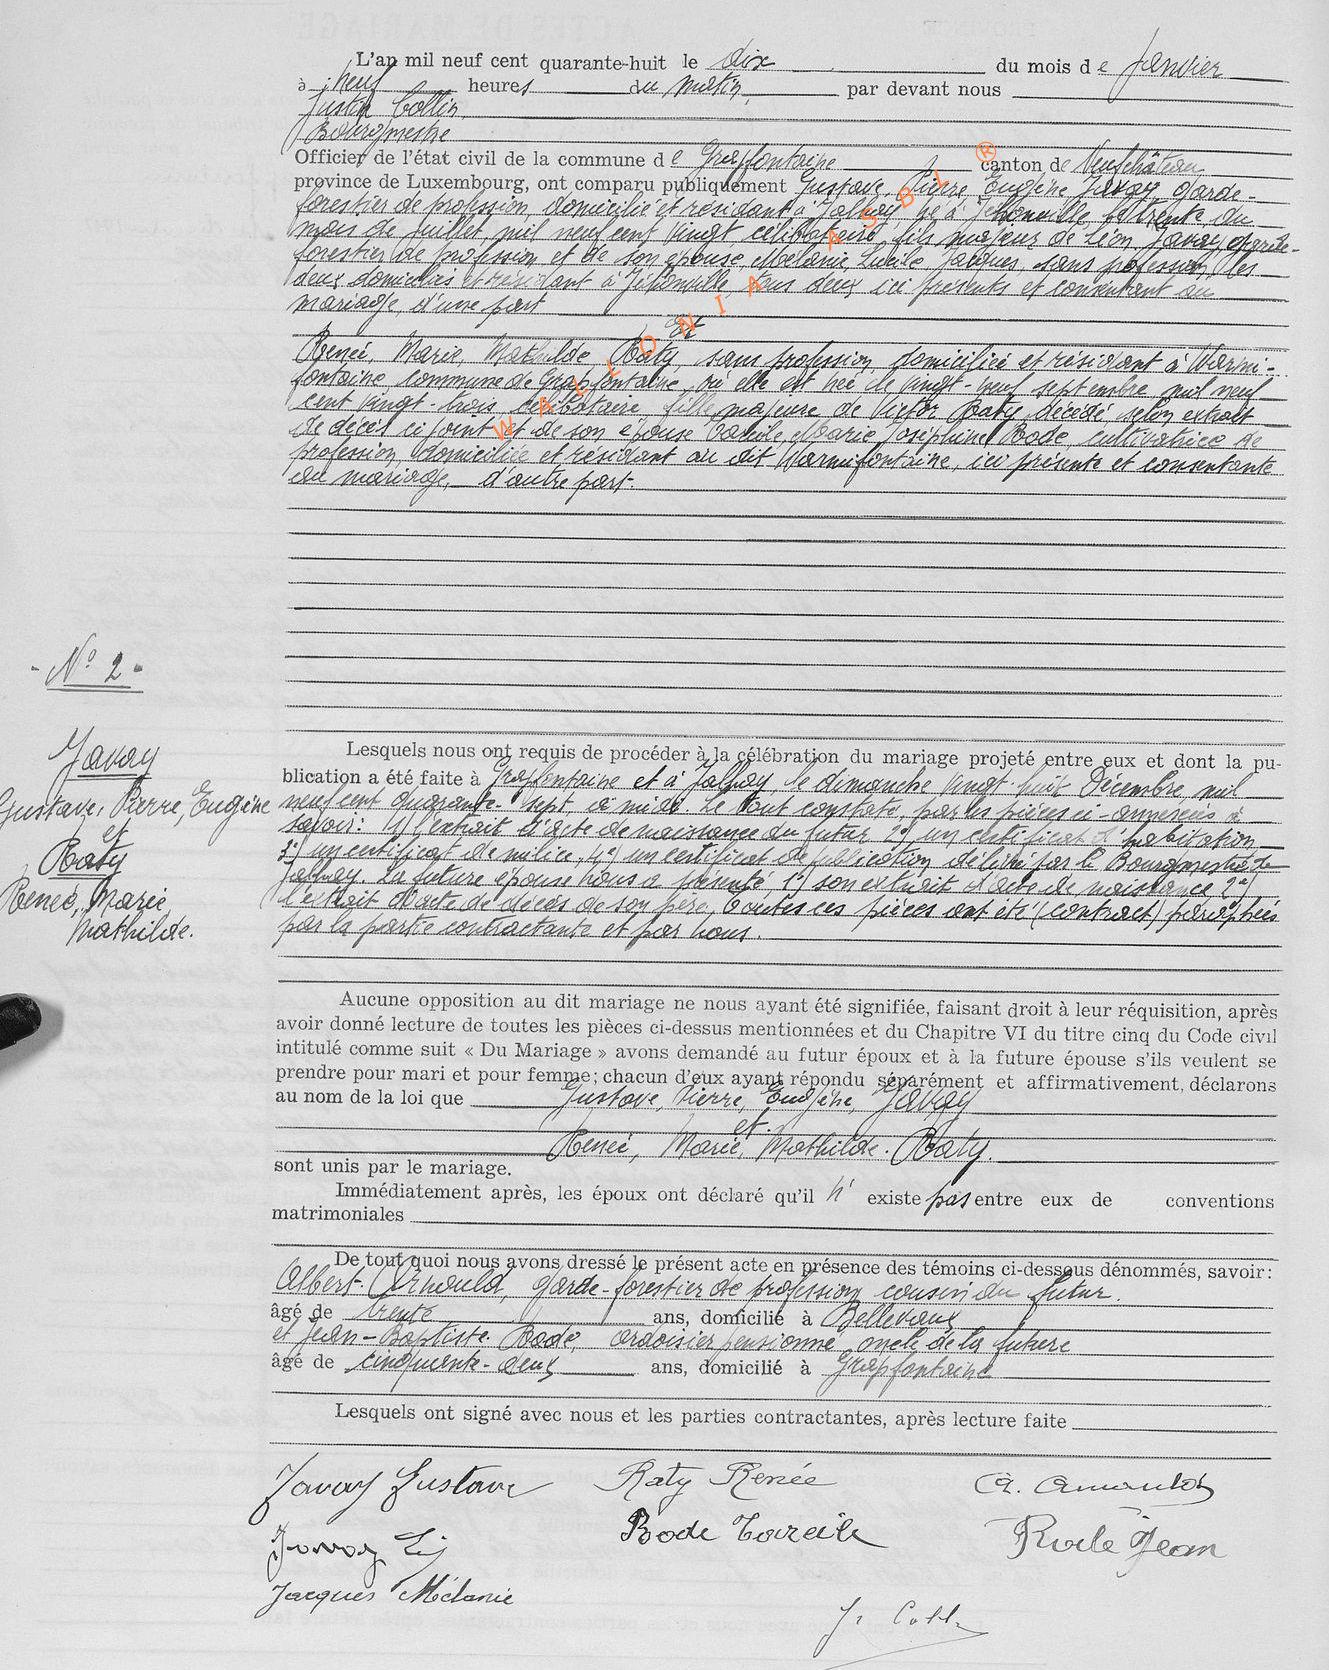 L'an mil neuf cent quarante-huit le dix du mois de Janvier
à neuf heures du matin, par devant nous
Justin Collin,
Bourgmestre
Officier de l'état civil de la commune de Grapfontaine canton de Neufchâteau
province de Luxembourg, ont comparu publiquement Gustave, Pierre, Eugène, Javay, garde-
forestier de profession, domicilié et résidant à Jalhay né à Jéhonville, le trente du
mois de Juillet, mil neuf cent vingt, célibataire, fils majeur de Léon, Javay, garde-
forestier de profession et de son épouse, Mélanie, Lucile Jacques, sans profession, les
deux domiciliés et résidant à Jéhonville, tous deux ici présents et consentant au
mariage, d'une part
Et
Renée, Marie, Mathilde Raty, sans profession, domiciliée et résidant à Warmi-
fontaine commune de Grapfontaine, où elle est née le vingt-neuf septembre mil neuf
cent vingt-trois, célibataire, fille majeure de Victor Raty décédé selon extrait
de décès ci joint et de son épouse Marie Joséphine Bode, cultivatrice de
profession, domiciliée et résidant au dit Warmifontaine, ici présente et consentante
au mariage, d'autre part.
- N° 2 -
Javay
Gustave, Pierre, Eugène
et
Raty
Renée, Marie,
Mathilde.
Lesquels nous ont requis de procéder à la célébration du mariage projeté entre eux et dont la pu-
blication a été faite à Grapfontaine et à Jalhay, le dimanche vingt-huit Décembre mil
neuf cent quarante-sept à midi. Le tout constaté, par les pièces ci-annexées à
savoir: 1°) l'extrait d'acte de naissance du futur 2°) un certificat d'habitation,
3°) un certificat de milice, 4°) un certificat de publication délivré par le Bourgmestre de
Jalhay. La future épouse nous a présenté 1°) son extrait d'acte de naissance, 2°)
l'extrait d'acte de décès de son père, toutes ces pièces ont été (contract) paraphées
par la partie contractante et par nous.
Aucune opposition au dit mariage ne nous ayant été signifiée, faisant droit à leur réquisition, après
avoir donné lecture de toutes les pièces ci-dessus mentionnées et du Chapitre VI du titre cinq du Code civil
intitulé comme suit « Du Mariage » avons demandé au futur époux et à la future épouse s'ils veulent se
prendre pour mari et pour femme; chacun d'eux ayant répondu séparément et affirmativement, déclarons
au nom de la loi que Gustave, Pierre, Eugène, Javay
et
Renée, Marie, Mathilde. Raty.
sont unis par le mariage.
Immédiatement après, les époux ont déclaré qu'il n' existe pas entre eux de conventions
matrimoniales
De tout quoi nous avons dressé le présent acte en présence des témoins ci-dessous dénommés, savoir:
Albert Arnould, garde-forestier de profession cousin du futur.
âgé de trente ans, domicilié à Bellevaux
et Jean-Baptiste Bode, ardoisier pensionné, oncle de la future
âgé de cinquante-deux ans, domicilié à Grapfontaine
Lesquels ont signé avec nous et les parties contractantes, après lecture faite
Javay Gustave Raty Renée A. Arnould
Javay Bode Bode Jean
Jacques Mélanie
J. Coll
WALLONIA ASBL ®